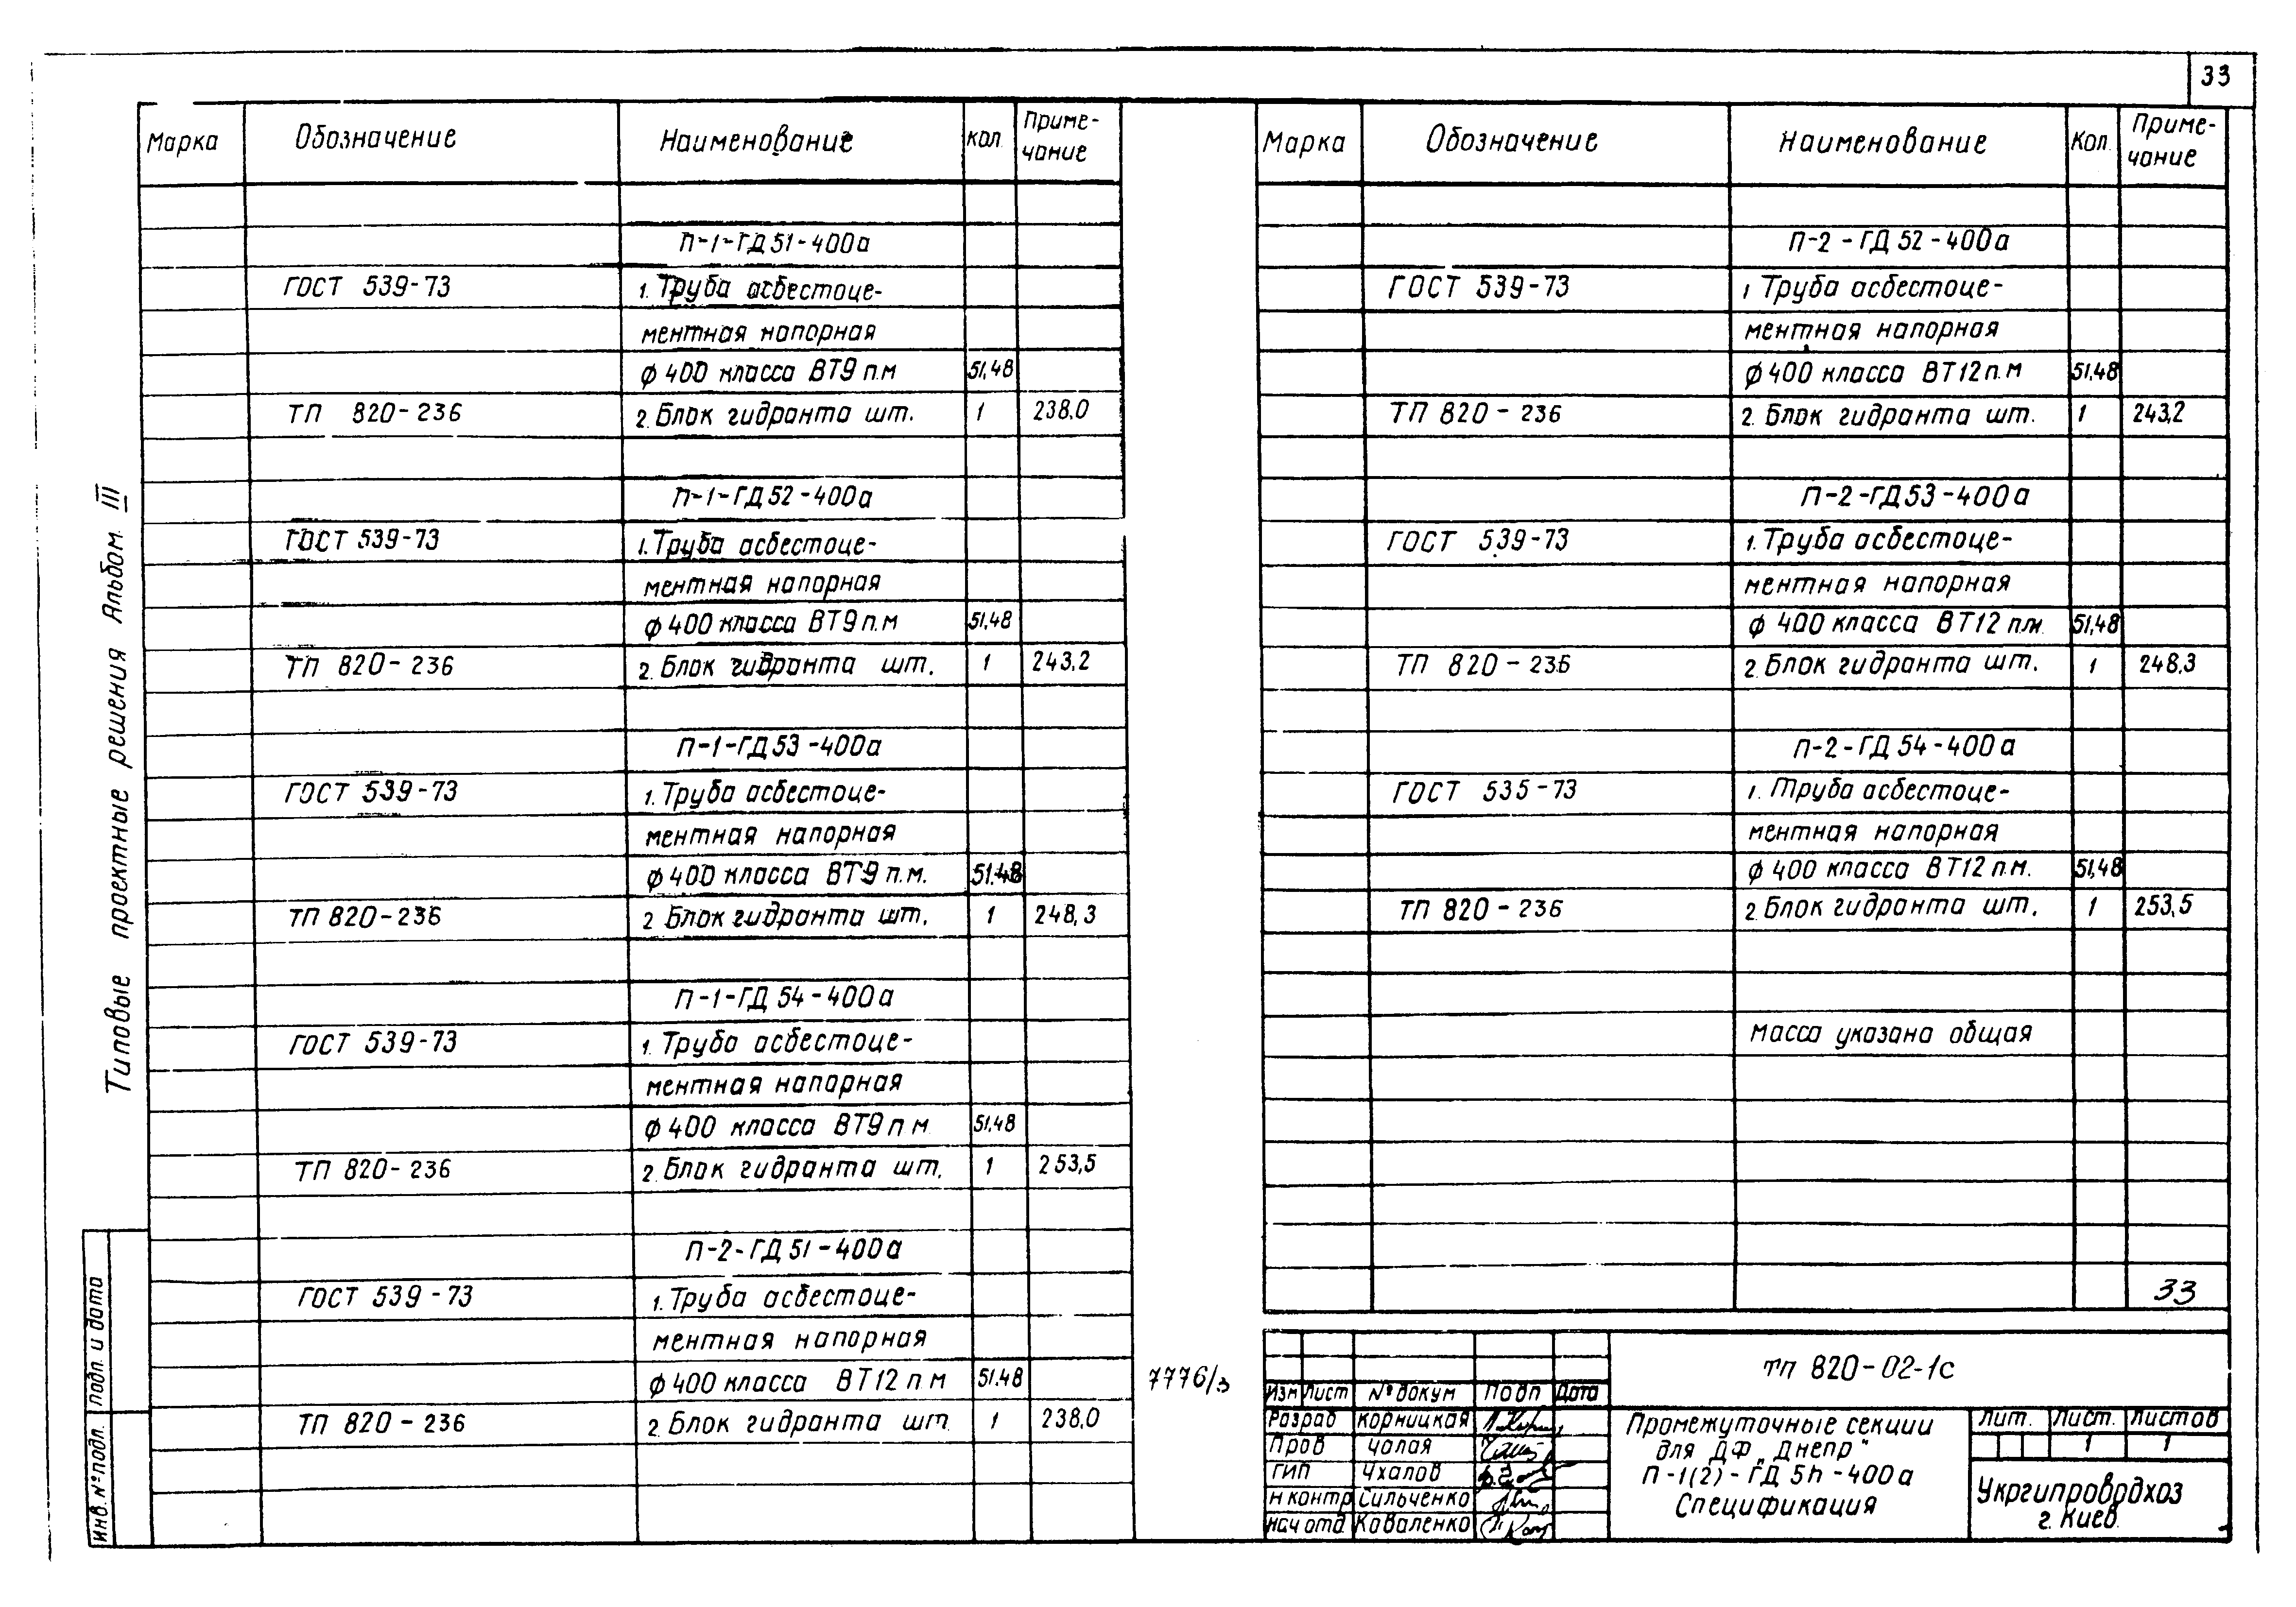 33
Марка Обозначение Наименование кол. Приме-
чание
П-1-ГД 51-400а
ГОСТ 539-73 1. Труба асбестоце-
ментная напорная
ф 400 класса ВТ9 п.м 51,48
ТП 820-236 2. Блок гидранта шт. 1 238.0
П-1-ГД 52-400а
ГОСТ 539-73 1. Труба асбестоце-
ментная напорная
ф 400 класса ВТ9 п.м 51,48
ТП 820-236 2. Блок гидранта шт. 1 243.2
П-1-ГД 53-400а
ГОСТ 539-73 1. Труба асбестоце-
ментная напорная
ф 400 класса ВТ9 п.м. 51.48
ТП 820-236 2 Блок гидранта шт. 1 248,3
П-1-ГД 54-400а
ГОСТ 539-73 1. Труба асбестоце-
ментная напорная
ф 400 класса ВТ9 п м 51.48
ТП 820-236 2. Блок гидранта шт. 1 253,5
П-2-ГД 51-400а
ГОСТ 539-73 1. Труба асбестоце-
ментная напорная
ф 400 класса ВТ12 п м 51.48
ТП 820-236 2. Блок гидранта шт 1 238,0
Марка Обозначение Наименование Кол. Приме-
чание
П-2-ГД 52-400а
ГОСТ 539-73 1 Труба асбестоце-
ментная напорная
ф 400 класса ВТ12 п.м 51,48
ТП 820-236 2. Блок гидранта шт. 1 243,2
П-2-ГД 53-400а
ГОСТ 539-73 1. Труба асбестоце-
ментная напорная
ф 400 класса ВТ12 п.м. 51,48
ТП 820-236 2. Блок гидранта шт. 1 248,3
П-2-ГД 54-400а
ГОСТ 535-73 1. Труба асбестоце-
ментная напорная
ф 400 класса ВТ12 п.м. 51,48
ТП 820-236 2. Блок гидранта шт. 1 253,5
Масса указана общая
33
Типовые проектные решения Альбом III
Подп. и дата
Инв. № подл.
7776/3
ТП 820-02-1с
Изм Лист № докум Подп Дата
Разраб Корницкая
Пров Чалая
ГИП Чхалов
Н контр Сильченко
Нач отд Коваленко
Промежуточные секции
для ДФ „Днепр"
П-1(2)-ГД 5n-400а
Спецификация
Лит. Лист. Листов
1 1
Укргипроводхоз
г. Киев.